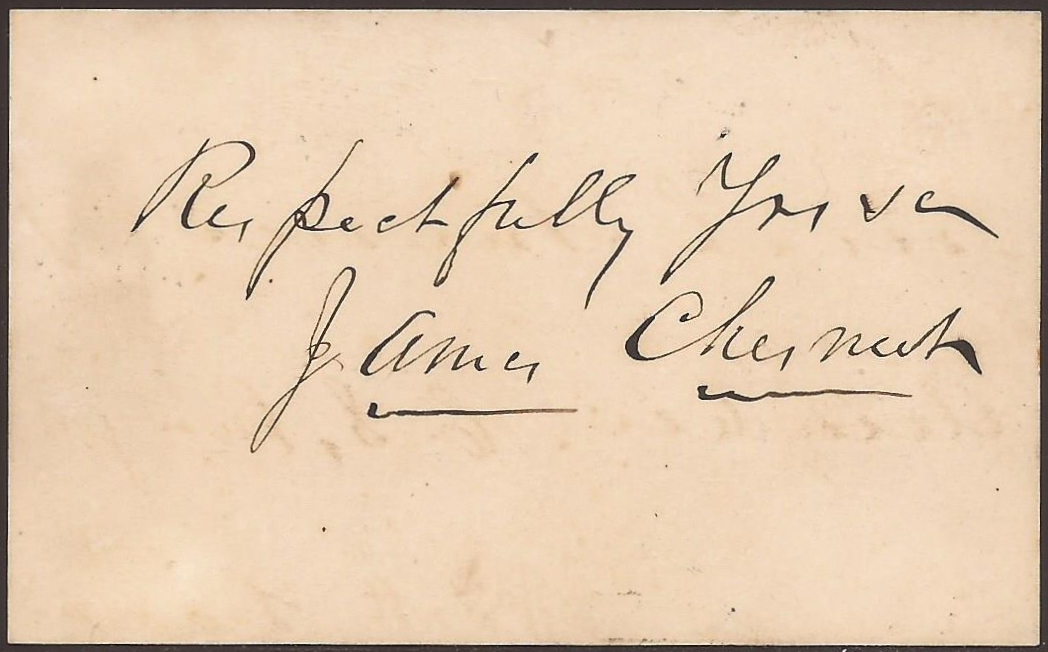 Respectfully Yrs &c
James Chesnut